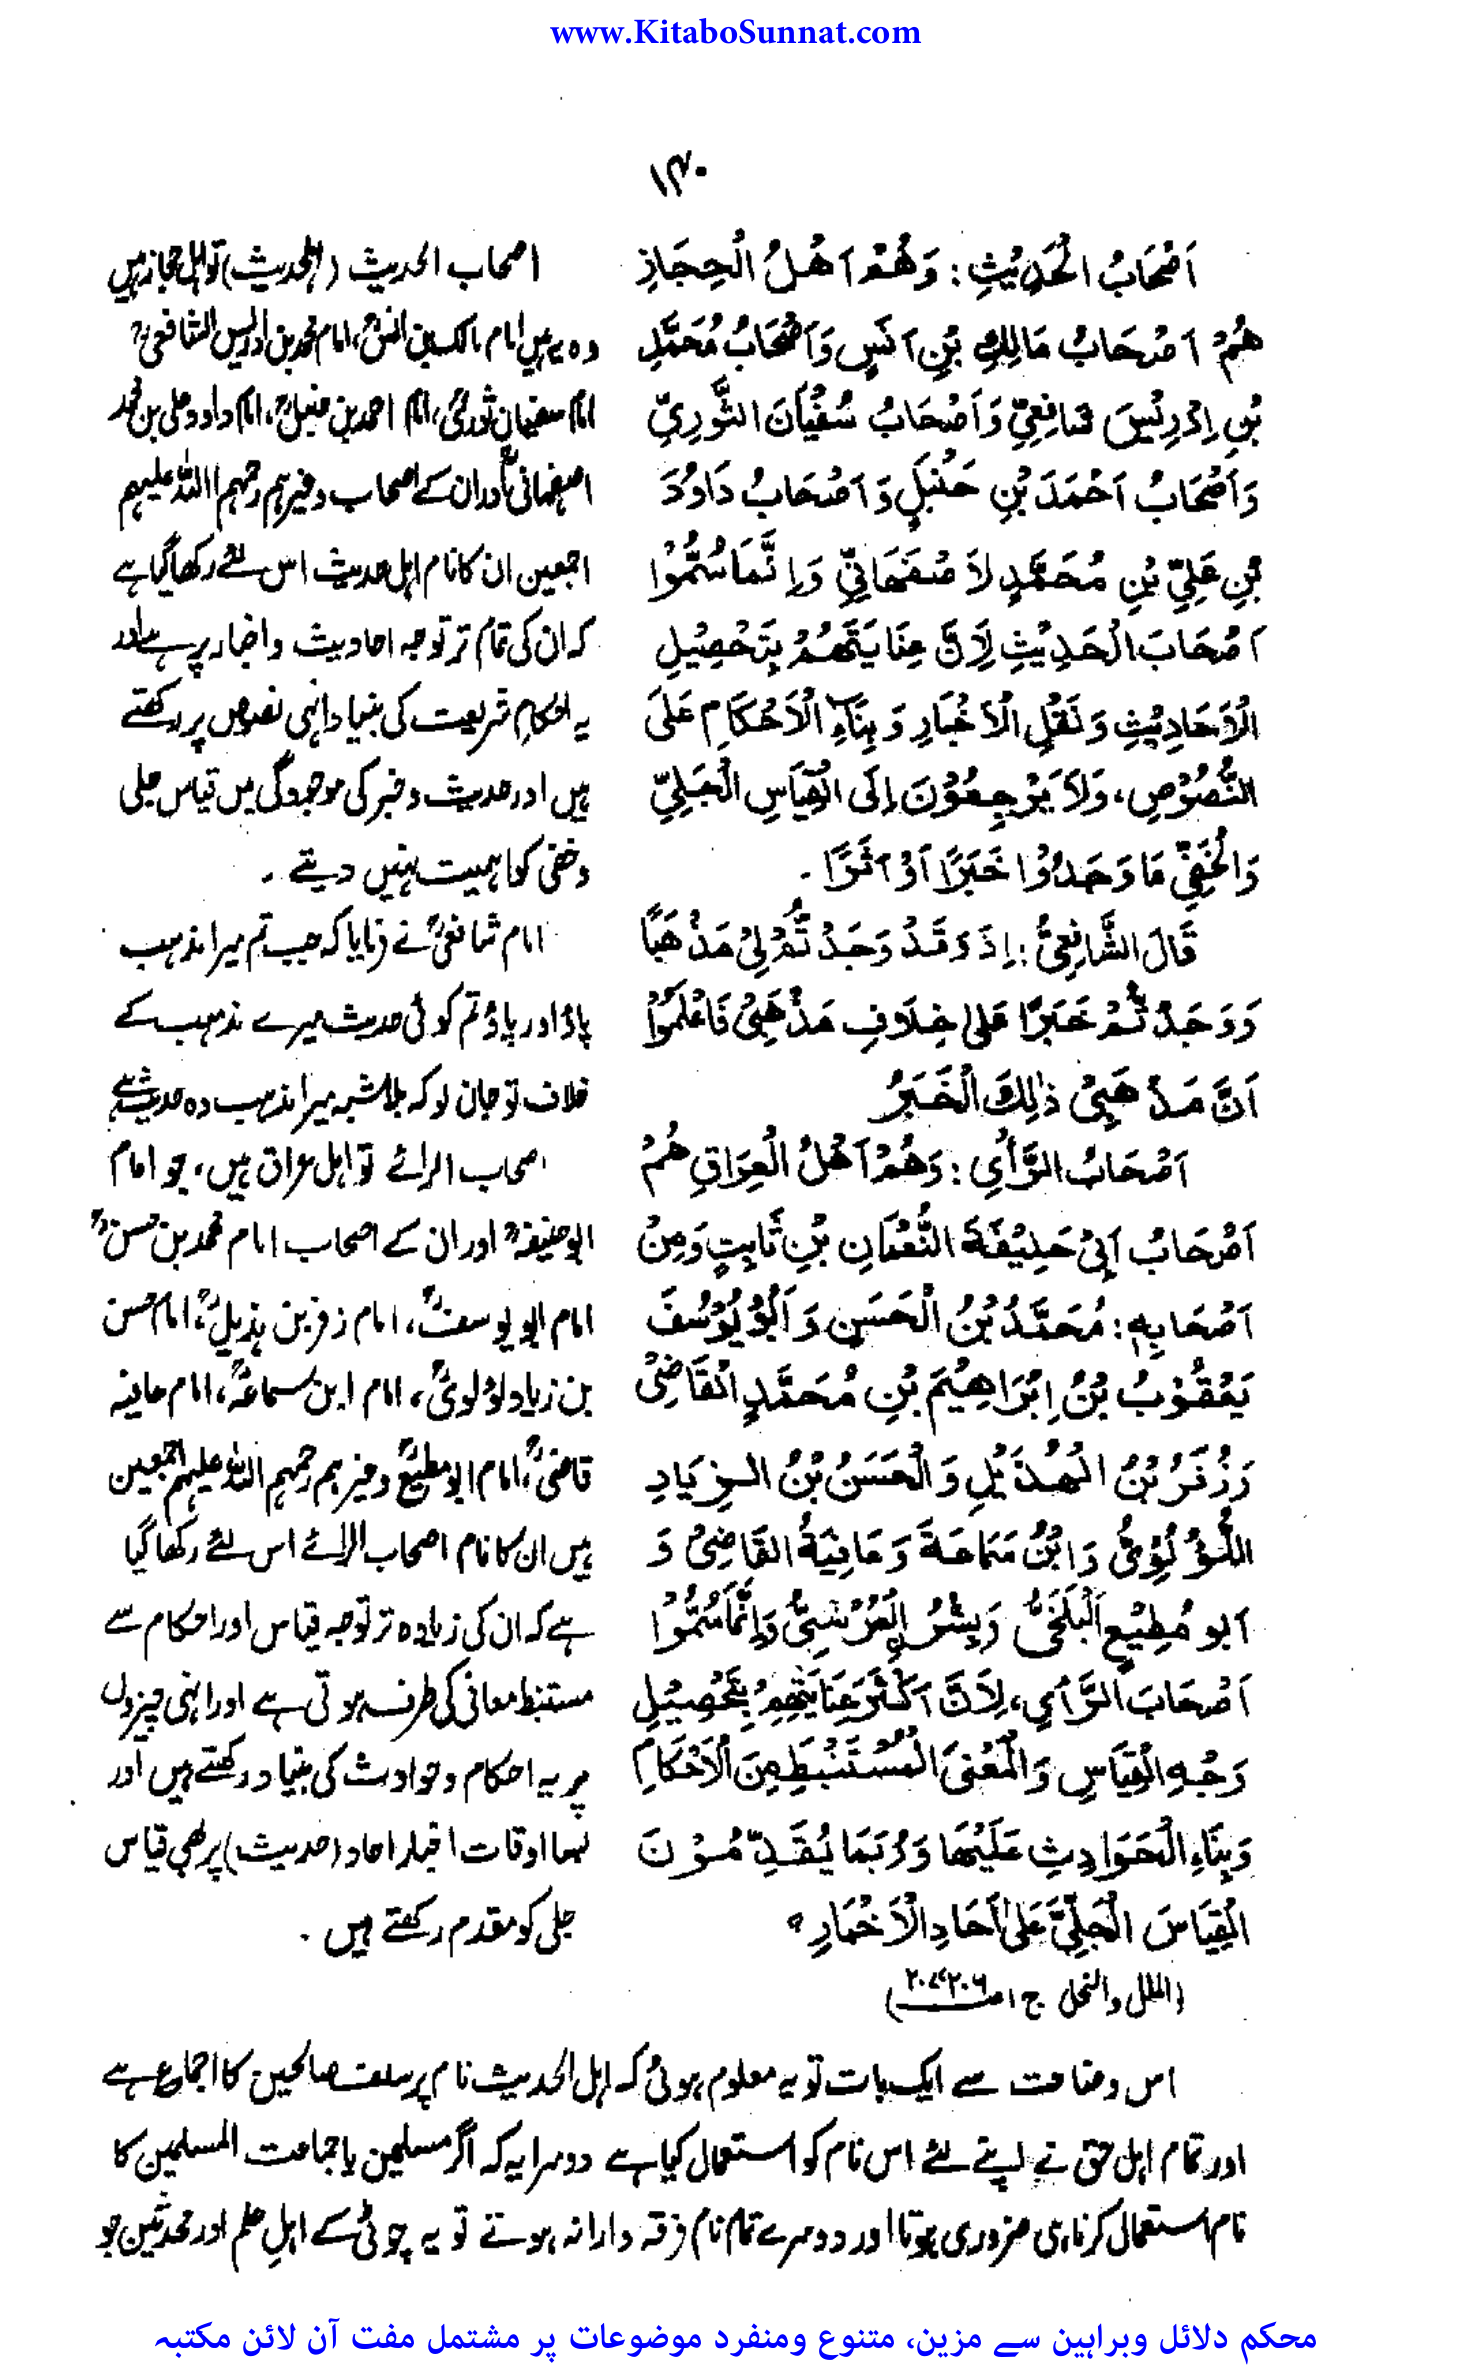 www.KitaboSunnat.com
۱۴۰
اَصْحَابُ الْحَدِيْثِ : وَهُمْ اَهْلُ الْحِجَازِ
هُمْ اَصْحَابُ مَالِكِ بْنِ اَنَسٍ وَاَصْحَابُ مُحَمَّدِ
بْنِ اِدْرِيْسَ شَافِعِيِّ وَاَصْحَابُ سُفْيَانَ الثَّوْرِيِّ
وَاَصْحَابُ اَحْمَدَ بْنِ حَنْبَلٍ وَاَصْحَابُ دَاوُدَ
بْنِ عَلِيِّ بْنِ مُحَمَّدٍ لاَصْفَهَانِيِّ وَاِنَّمَا سُمُّوْا
اَصْحَابَ الْحَدِيْثِ لِاَنَّ عِنَايَتَهُمْ بِتَحْصِيْلِ
الْاَحَادِيْثِ وَنَقْلِ الْاَخْبَارِ وَبِنَاءِ الْاَحْكَامِ عَلَى
النُّصُوْصِ، وَلَا يَرْجِعُوْنَ اِلَى الْقِيَاسِ الْجَلِيِّ
وَالْخَفِيِّ مَا وَجَدُوْا خَبَرًا اَوْ اَثَرًا ۔
قَالَ الشَّافِعِيُّ : اِذَ وَقَدْ وَجَدْ تُّمْ لِيْ مَذْهَبًا
وَوَجَدْ تُّمْ خَبَرًا عَلىٰ خِلَافِ مَذْهَبِيْ فَاعْلَمُوْا
اَنَّ مَذْهَبِيْ ذٰلِكَ الْخَبَرُ
اَصْحَابُ الرَّأيِ : وَهُمْ اَهْلُ الْعِرَاقِ هُمْ
اَصْحَابُ اَبِيْ حَنِيْفَةَ النُّعْمَانِ بْنِ ثَابِتٍ وَمِنْ
اَصْحَابِهٖ : مُحَمَّدُ بْنُ الْحَسَنِ وَ اَبُوْ يُوْسُفَ
يَعْقُوْبُ بْنُ اِبْرَاهِيْمَ بْنِ مُحَمَّدٍ الْقَاضِيْ
وَزُفَرُ بْنُ الْهُذَيْلِ وَ الْحَسَنُ بْنُ الزِيَادِ
اللُّؤْلُؤِيُّ وَابْنُ سَمَاعَةَ وَ عَافِيَةُ الْقَاضِيْ وَ
اَبو مُطِيْعٍ الْبَلَخِيُّ وَبِشْرُ الْمَرِيْسِيُّ وَاِنَّمَا سُمُّوْا
اَصْحَابَ الرَّأيِ، لِاَنَّ اَكْثَرَ عِنَايَتِهِمْ بِتَحْصِيْلِ
وَجْهِ الْقِيَاسِ وَالْمَعْنَى الْمُسْتَنْبَطِ مِنَ الْاَحْكَامِ
وَبِنَاءِ الْحَوَادِثِ عَلَيْهَا وَرُبَمَا يُقَدِّمُوْنَ
الْقِيَاسَ الْجَلِيَّ عَلىٰ اٰحَادِ الْاَخْبَارِ ۰
(الملل والنحل ج۱ ص۲۰۶، ۲۰۷)
اصحاب الحدیث (اہلحدیث) تو اہل حجاز ہیں
وہ یہ ہیں امام مالک بن انسؒ، امام محمد بن ادریس الشافعیؒ
امام سفیان ثوریؒ، امام احمد بن حنبلؒ، امام داود علی بن محمد
اصفہانیؒ اور ان کے اصحاب وغیرہم رحمہم اللہ علیہم
اجمعین ان کا نام اہل حدیث اس لئے رکھا گیا ہے
کہ ان کی تمام تر توجہ احادیث و اخبار پر ہے اور
یہ احکام شریعت کی بنیاد انہی نصوص پر رکھتے
ہیں اور حدیث و خبر کی موجودگی میں قیاس جلی
و خفی کو اہمیت نہیں دیتے ۔
امام شافعیؒ نے فرمایا کہ جب تم میرا مذہب
پاؤ اور پاؤ تم کوئی حدیث میرے مذہب کے
خلاف تو جان لو کہ بلاشبہ میرا مذہب وہ حدیث ہے
اصحاب الرائے تو اہل عراق ہیں، جو امام
ابوحنیفہؒ اور ان کے اصحاب امام محمد بن حسنؒ
امام ابو یوسفؒ، امام زفر بن ہذیلؒ، امام حسن
بن زیاد لؤلویؒ، امام ابن سماعہؒ، امام عافیہ
قاضیؒ، امام ابو مطیعؒ وغیرہم رحمہم اللہ علیہم اجمعین
ہیں ان کا نام اصحاب الرائے اس لئے رکھا گیا
ہے کہ ان کی زیادہ تر توجہ قیاس اور احکام سے
مستنبط معانی کی طرف ہوتی ہے اور انہی چیزوں
پر یہ احکام و حوادث کی بنیاد رکھتے ہیں اور
بسا اوقات اخبار احاد (حدیث) پر بھی قیاس
جلی کو مقدم رکھتے ہیں ۔
اس وضاحت سے ایک بات تو یہ معلوم ہوئی کہ اہل الحدیث نام پر سلف صالحین کا اجماع ہے
اور تمام اہل حق نے اپنے لئے اس نام کو استعمال کیا ہے دوسرا یہ کہ اگر مسلمین یا جماعت المسلمین کا
نام استعمال کرنا ہی ضروری ہوتا اور دوسرے تمام نام فرقہ دارانہ ہوتے تو یہ چوٹی کے اہل علم اور محدثین جو
محکم دلائل وبراہین سے مزین، متنوع ومنفرد موضوعات پر مشتمل مفت آن لائن مکتبہ